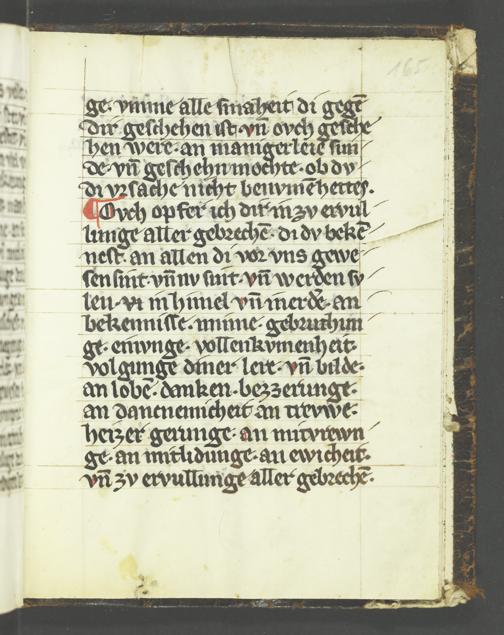 165
ge· vmme alle smaheit di gegē
dir geschehen ist· vn̄ ovch gesche
hen were· an manigerleie sun
de· vn̄ geschehn mochte· ob dv
di vrsache nicht benvmē hettes·
Ovch opfer ich dir in zv ervul
lunge aller gebrechē· di dv bekē
nest· an allen di vor vns gewe
sen sint vn̄ nv sint· vn̄ werden sv
len· in himel vn̄ in erdē· an
bekennisse· minne· gebruchun
ge· einvnge· vollenkvmenheit·
volgunge diner lere· vn̄ bilde·
an lobē· danken· bezzerunge·
an dancnemicheit an trevwe·
heizer gerunge· an mitvrewn
ge· an mitlidunge· an ewicheit·
vn̄ zv ervullunge aller gebrechē·